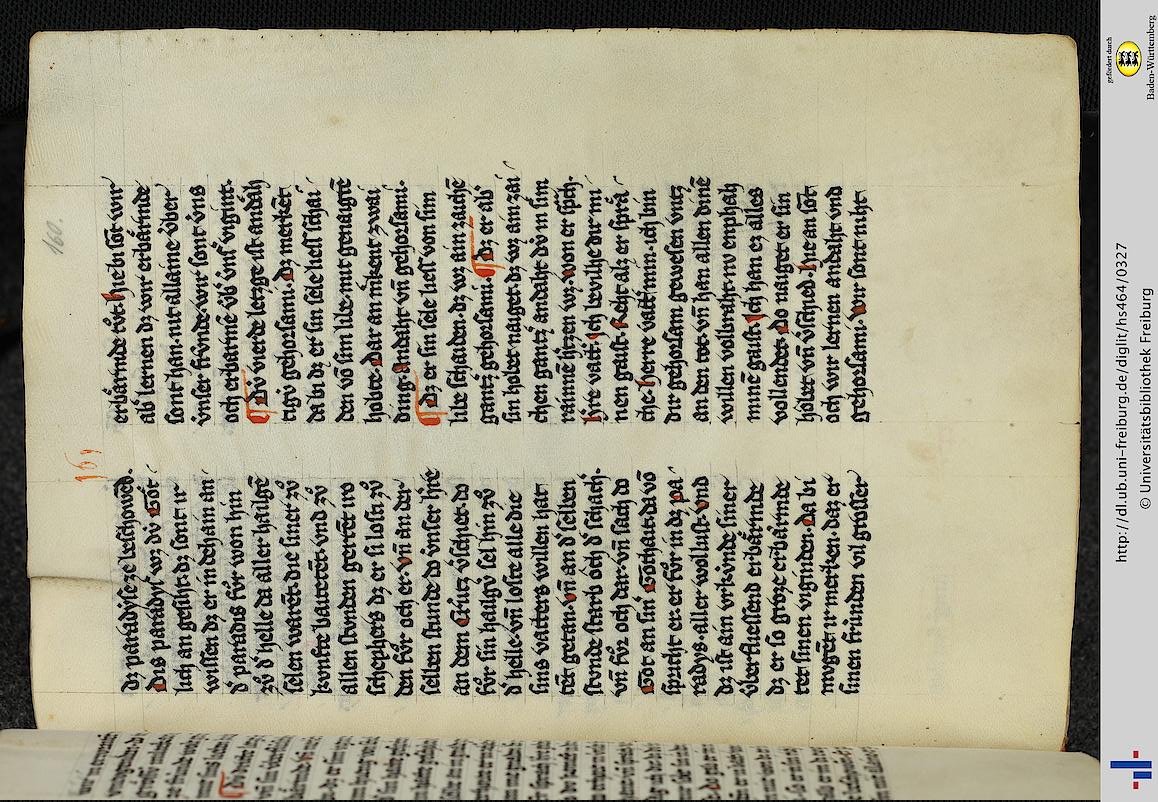 160.
163
dz paradyse ze beschowed.
Dis paradyſ wz dv̍ Got
lich an geſiht. dz ſont ir
wiſſen dz er in dehain an
d' paradis fůr won hin
zů d' helle da aller hailgē
ſelen warēt. die ſiner zů
kvnfte baitetēt. vnd zů
allen ſtvnden geretēr iro
ſchephers dz er ſi loſti. zů
den fůr och er. vn̄ an der
ſelben ſtunde do vnſer h're
an dem Crútz v'ſchiet. do
fůr ſin hailgv̍ ſel hin zů
d' helle. vn̄ loſte alle die
ſins vatters willen hat
tēt getan. vn̄ an d' ſelben
ſtvnde ſtarb och d' ſchach'.
vn̄ fůr och dar. vn̄ ſach do
Got an ſin' Gothait. da vō
ſpricht er. er fůr in dz pa
radys. aller wolluſt. vnd
Dz iſt ain vrkvnde ſiner
v̍berflieſſend erbårmde
dz er ſo groze erbårmde
tet ſinen viginden. Da bi
mvgēt ir merken. daz er
ſinen frúnden vil groſſer
erbårmde tůt. hie bi ſōt wir
ab lernen dz wir erbårmde
ſont han. nit allaine v̍ber
v̍nſer frv̍nde. wir ſont v̍ns
och erbarmē v̍b' vnſ' vigint.
Dv̍ vierde letzge iſt andåh
tigv̍ gehorſami. Dz merkēt
da bi dz er ſin ſele lieſſ ſchai
den vō ſim libe. mit genaigtē
hobte. Dar an m'kent zwai
ding. Andaht vn̄ gehorſami.
Dz er ſin ſele lieſſ von ſim
libe ſchaiden. dz wz ain zaichē
gantz' gehorſami. Dz er ab'
ſin hobet naiget. dz wz ain zai
chen gantz' andaht dv̍ in ſim
rainnē h'tzen wz. won er ſp'ch.
h're vatt'. ich bevilhe dir mi
nen gaiſt. Reht alz er ſprå
che. herre vatt' min. ich bin
dir gehorſam geweſen vntz
an den tot. vn̄ han allen dinē
willen volbraht. nv enphah
minē gaiſt. Ich han ez alles
vollendet. Do naiget er ſin
hobet vn̄ v'ſchied. hie an ſōt
och wir lernen andaht vnd
gehorſami. wir ſont niht
http://dl.ub.uni-freiburg.de/diglit/hs464/0327
© Universitätsbibliothek Freiburg
gefördert durch
Baden-Württemberg